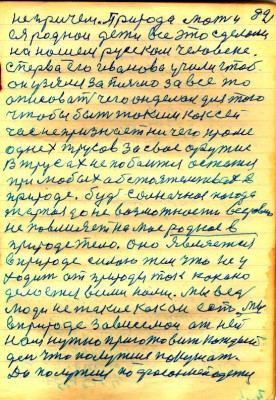 не причем. Природа мать и 89
и родной дети все это сделали
на нашем русском человеке.
сперва его Иванова учили чтоб
он взялся за писмо за все то
описовать чего он делал для того
чтобы быт таким как сей
час не признает ничего кроме
одних трусов за свое оружие
В трусах не побоялся остатся
при любых обстоятельствах в
природе. буд солнечная погода
не повлияет на мое родное в
природе тело. оно является
в природе силою тем что не у
ходит от природы так как оно
делается всеми нами. Мы вед
люди не такие как он есть. мы
в природе зависемои от ней
Нам нужно приготовит каждый
ден что получше покушат.
Да получше по фасонней одется